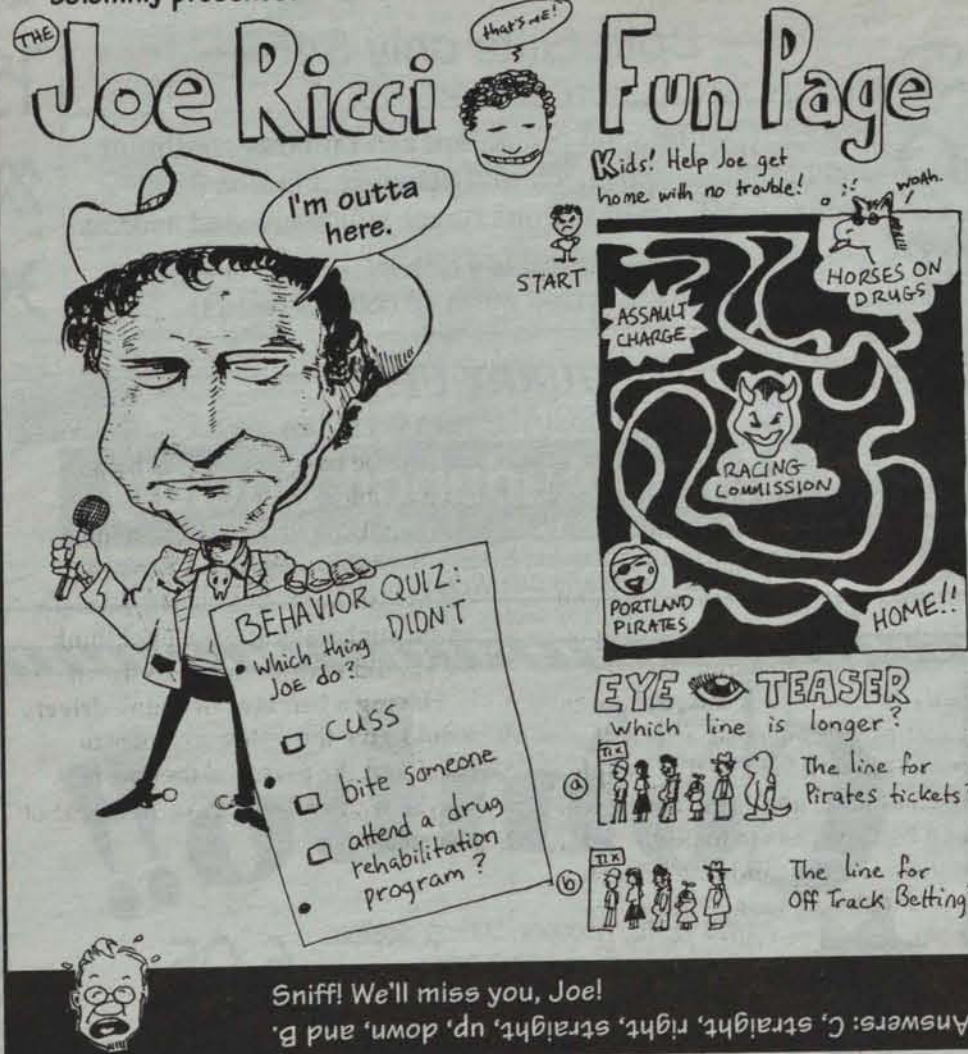 THE
Joe Ricci
that's me!
Fun Page
I'm outta
here.
BEHAVIOR QUIZ:
• Which thing DIDN'T
Joe do?
cuss
bite someone
attend a drug
rehabilitation
program?
Kids! Help Joe get
home with no trouble!
START
WOAH.
HORSES ON
DRUGS
ASSAULT
CHARGE
RACING
COMMISSION
PORTLAND
PIRATES
HOME!!
EYE TEASER
Which line is longer?
a
TIX
The line for
Pirates tickets?
b
TIX
The line for
Off Track Betting
Sniff! We'll miss you, Joe!
Answers: C, straight, right, straight, up, down, and B.